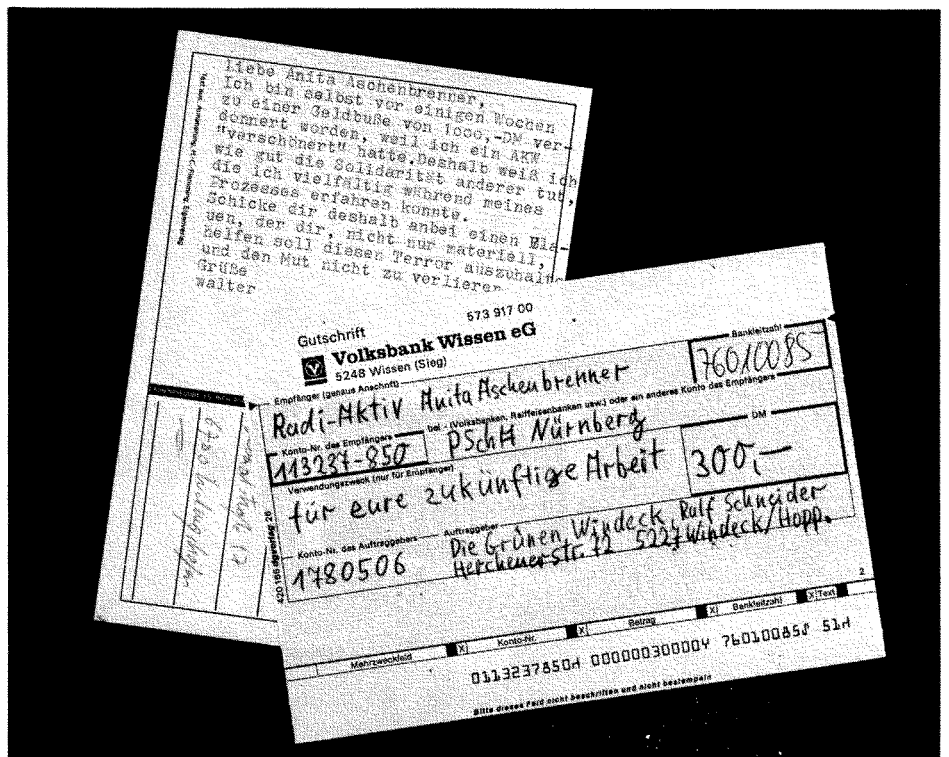 liebe Anita Aschenbrenner,
Ich bin selbst vor einigen Wochen
zu einer Geldbuße von 1000,-DM ver-
donnert worden, weil ich ein AKW
"verschönert" hatte.Deshalb weiß ich
wie gut die Solidarität anderer tut,
die ich vielfältig während meines
Prozesses erfahren konnte.
Schicke dir deshalb anbei einen Bla-
uen, der dir, nicht nur materiell,
helfen soll diesen Terror auszuhalten
und den Mut nicht zu verlieren
Grüße
walter
573 917 00
Gutschrift
Volksbank Wissen eG
5248 Wissen (Sieg)
Bankleitzahl
76010085
Empfänger (genaue Anschrift)
Radi-Aktiv Anita Aschenbrenner
Konto-Nr. des Empfängers
bei - (Volksbanken, Raiffeisenbanken usw.) oder ein anderes Konto des Empfängers
113237-850 PSchA Nürnberg
Verwendungszweck (nur für Empfänger)
DM
für eure zukünftige Arbeit 300,—
Konto-Nr. des Auftraggebers
Auftraggeber
1780506 Die Grünen Windeck, Ralf Schneider
Herchenerstr. 12 5227 Windeck/Hopp.
2
Mehrzweckfeld X Konto-Nr. X Betrag X Bankleitzahl X Text
0113237850H 00000030000Y 76010085 51H
Bitte dieses Feld nicht beschriften und nicht bestempeln